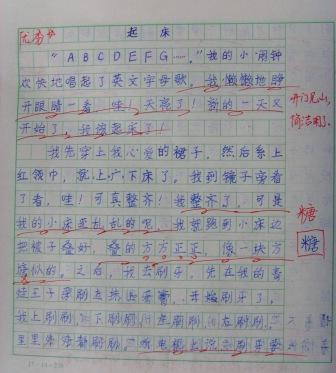 优秀
起床
"ABCDEFG……"我的小闹钟
欢快地唱起了英文字母歌,我懒懒地睁
开眼睛一看,哇!天亮了!新的一天又
开始了,我该起床了!
开门见山,
简洁明了。
我先穿上我心爱的裙子,然后系上
红领巾,就上厕下床了。我到镜子旁看
了看,哇!可真整齐!我整齐了,可是
我的小床还乱乱的呢,我就跑到小床边
把被子叠好,叠的方方正正,像一块方
糖似的。之后,我去刷牙,先在我的
糖
糖
开始刷牙了。
我上刷刷,下刷刷,左刷刷,右刷刷,
里里外外都刷刷。听电视上说